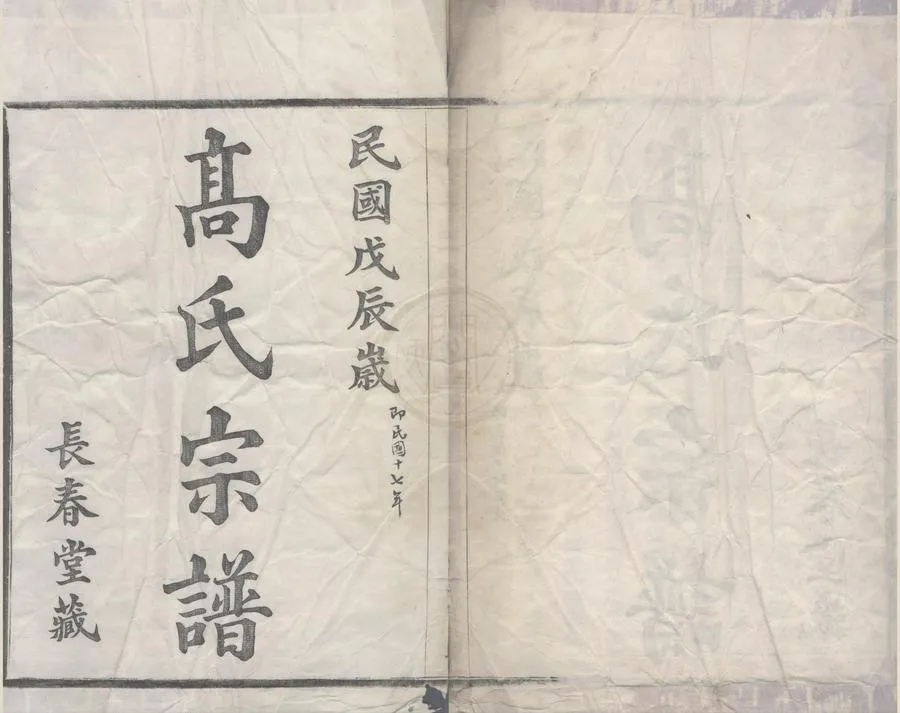 民國戊辰歲
即民國十七年
髙氏宗譜
長春堂藏